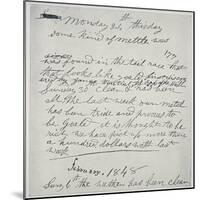 Monday 24th this day
some kind of mettle was
found in the tail race that
that looks like goald
Sunday 30 clear & has been
all the last week our metal
has been tride and prooves to
be goald it is thought to be
rich we have pict up more than
a hundred dollars worth last
week
February, 1848
Sun 6 the wether has been clear